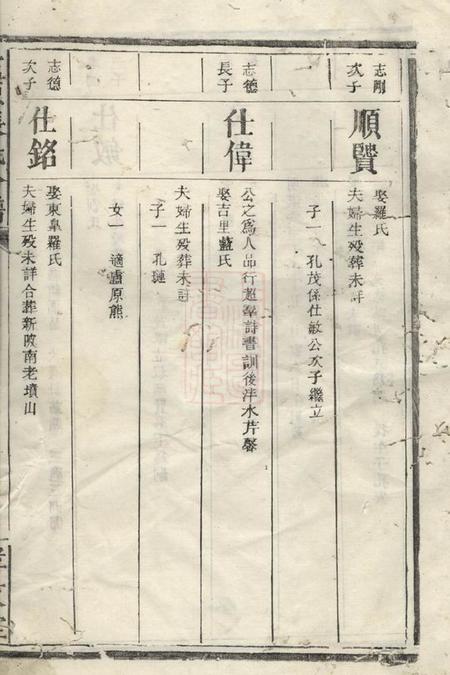 志剛
次子
順賢
娶羅氏
夫婦生歿葬未詳
子一 孔茂係仕敏公次子繼立
志德
長子
仕偉
公之為人品行超羣詩書訓後泮水芹馨
娶吉里藍氏
夫婦生歿葬未詳
子一 孔璉
女一 適盧原熊
志德
次子
仕銘
娶東阜羅氏
夫婦生歿未詳合葬新陂南老墳山